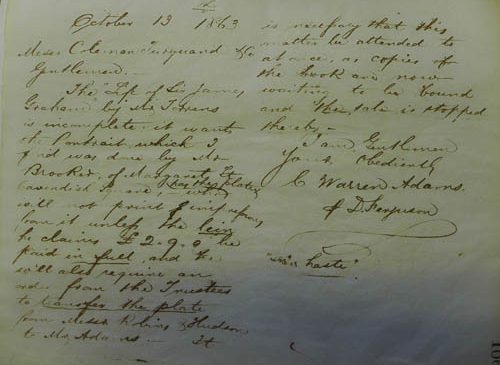 October 13 1863
Messrs Coleman Turquand & Co
Gentlemen. —
The Life of Sir James
Graham by Mr Torrens
is incomplete, it wants
the Portrait which I
find was done by Mr
Brooker, of Margaret St
Cavendish Square
will not print
from it unless the
he claims £2.9.0 be
paid in full, and he
will also require an
order from the Trustees
to transfer the plate
from Messrs Robins & Hudson
to Mr Adams — It
is necessary that this
matter be attended to
at once, as copies of
the book are now
waiting to be bound
and the sale is stopped
thereby —
I am Gentlemen
Yours Obediently
C Warren Adams.
p D. Ferguson
"in haste"